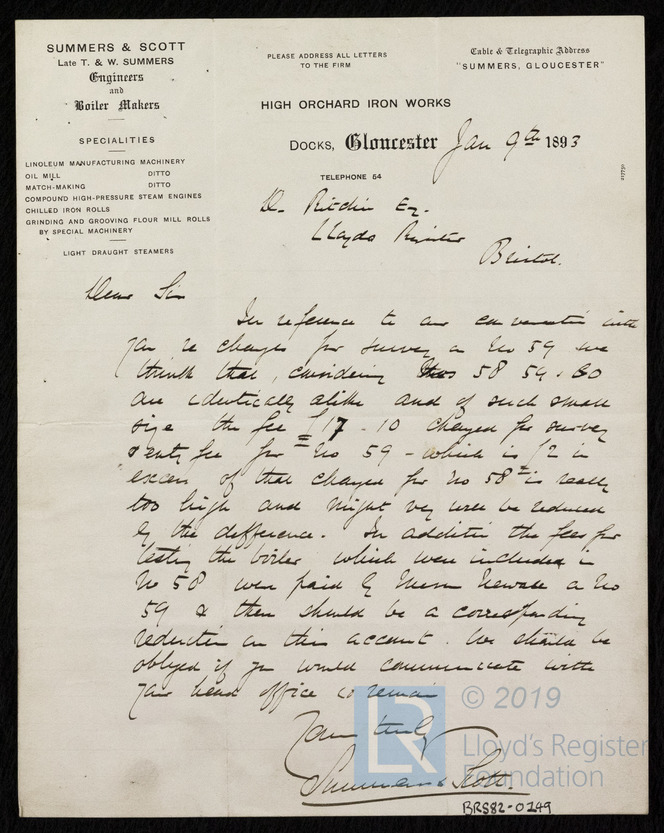 SUMMERS & SCOTT
Late T. & W. SUMMERS
Engineers
and
Boiler Makers
SPECIALITIES
LINOLEUM MANUFACTURING MACHINERY
OIL MILL DITTO
MATCH-MAKING DITTO
COMPOUND HIGH-PRESSURE STEAM ENGINES
CHILLED IRON ROLLS
GRINDING AND GROOVING FLOUR MILL ROLLS
BY SPECIAL MACHINERY
LIGHT DRAUGHT STEAMERS
PLEASE ADDRESS ALL LETTERS
TO THE FIRM
Cable & Telegraphic Address
"SUMMERS, GLOUCESTER"
HIGH ORCHARD IRON WORKS
DOCKS, Gloucester Jan 9th 1893
TELEPHONE 54
D. Ritchie Eq.
Lloyds Register
Bristol.
Dear Sir
In reference to our conversation with
you re charges for survey on No 59 we
think that, considering Nos 58 59 & 60
are identically alike and of such small
size the fee £17-10 charged for survey
& entry fee for No 59 - which is £2 in
excess of that charged for No 58 is really
too high and might very well be reduced
by the difference. In addition the fees for
testing the boiler which were included in
No 58 were paid by Messrs on No
59 & there should be a corresponding
reduction on this account. We should be
obliged if you would communicate with
your head office & remain
Yours truly
Summers & Scott.
BRS82-0149
© 2019
LR
Lloyd's Register
Foundation